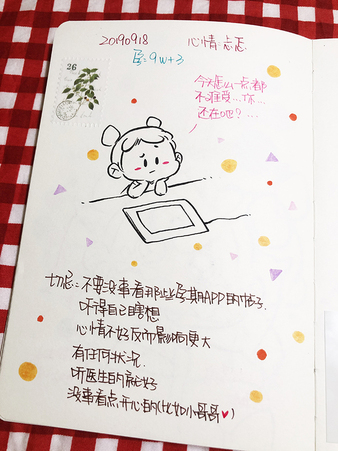 20190918 心情:忐忑
孕:9w+3
26
今天怎么一点都
不难受…你…
还在吧?…
切忌:不要没事看那些孕期APP的帖子.
吓得自己瞎想
心情不好反而影响更大
有任何状况.
听医生的就好
没事看点开心的(比如小哥哥♥)